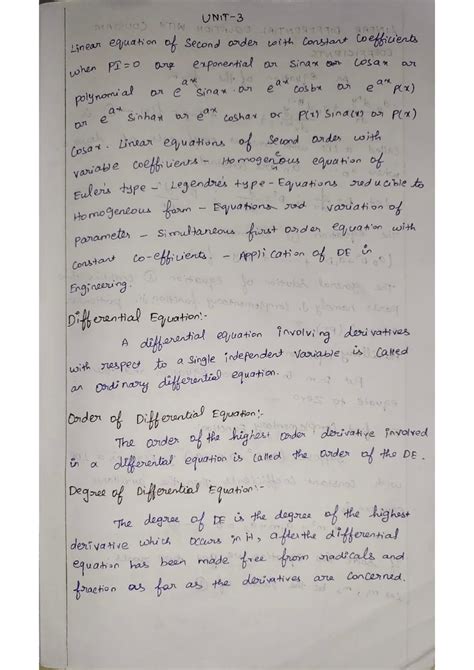 UNIT-3
Linear equation of Second order with constant Coefficients
when PI=0 are exponential or sinax or cosax or
polynomial or e^ax sinax or e^ax cosbx or e^ax p(x)
or e^ax sinhax or e^ax coshax or p(x) Sina(x) or p(x)
Cosax. Linear equations of Second order with
variable coefficients - Homogenous equation of
Euler's type - Legendre's type - Equations reducible to
Homogeneous form - Equations red variation of
Parameter - Simultaneous first order equation with
Constant co-efficients. - Application of DE in
Engineering.
Differential Equation:-
A differential equation involving derivatives
with respect to a single independent variable is called
an ordinary differential equation.
Order of Differential Equation:-
The order of the highest order derivative involved
in a differental equation is called the order of the DE.
Degree of Differential Equation:-
The degree of DE is the degree of the highest
derivative which occurs in it, after the differential
equation has been made free from radicals and
fraction as far as the derivatives are concerned.